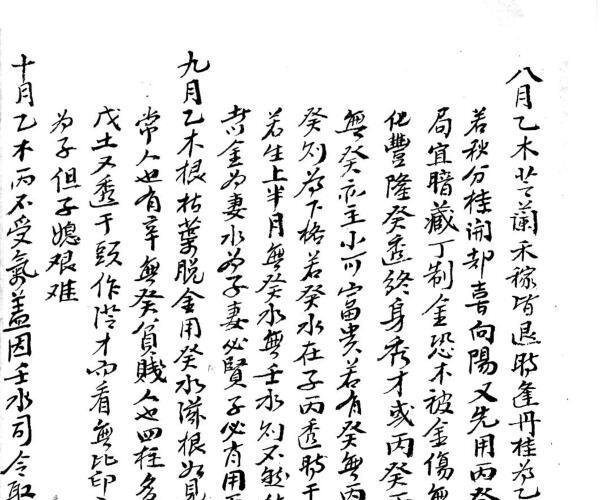 八月乙木芝蘭禾稼皆退時逢丹桂為乙
若秋分桂開却喜向陽又先用丙癸
局宜暗藏丁制金恐木被金傷無
化豐隆癸透終身秀才或丙癸
無癸亦主小可富貴若有癸無丙
癸则為下格若癸水在子丙透時干
若生上半月無癸水無壬水则不
金為妻水為子妻必賢子必肖用
九月乙木根枯葉脱金用癸水滋根如見
常人也有辛無癸貧賤人也四柱多
戊土又透于頭作從才而看無比印
为子但子媳艰难
十月乙木丙不受氣盖因壬水司令取